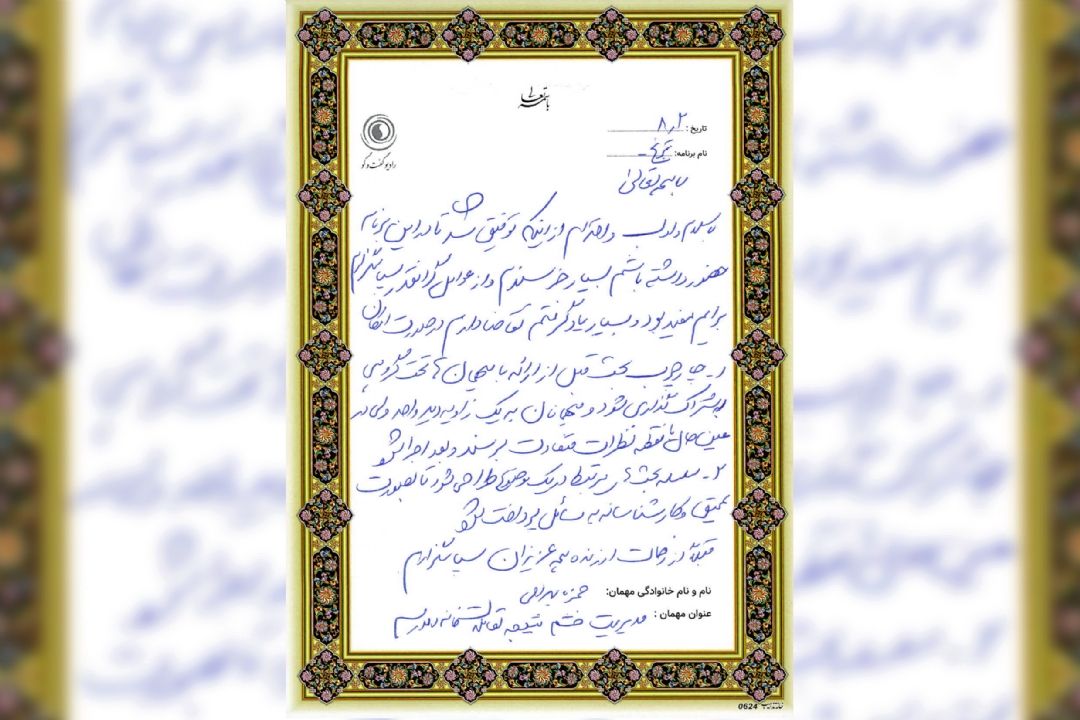 باسمه تعالی
تاریخ: ۸٫۲
رادیو گفت‌وگو
نام برنامه:
باسمه تعالی
با سلام و ادب و احترام از اینکه توفیقی شد تا در این برنامه
حضور داشته باشم بسیار خرسندم و از عوامل گرانقدر سپاسگزارم
برایم مفید بود و بسیار یاد گرفتم تقاضا دارم در صورت امکان
۱- چارچوب بحث قبل از ارائه با میهمان ها تحت گروهی
به اشتراک گذاری شود و میهمانان به یک زاویه دید واحد ولی در
عین حال با نقطه نظرات متفاوت برسند و بعد اجرا شود
۲- سلسله بحث های مرتبط در یک موضوع طراحی شود تا بصورت
عمیق و کارشناسانه به مسائل پرداخت شود
قبلاً از زحمات ارزنده همه عزیزان سپاسگزارم
نام و نام خانوادگی مهمان: حمزه
عنوان مهمان: مدیریت خشم نتیجه تعامل
0624